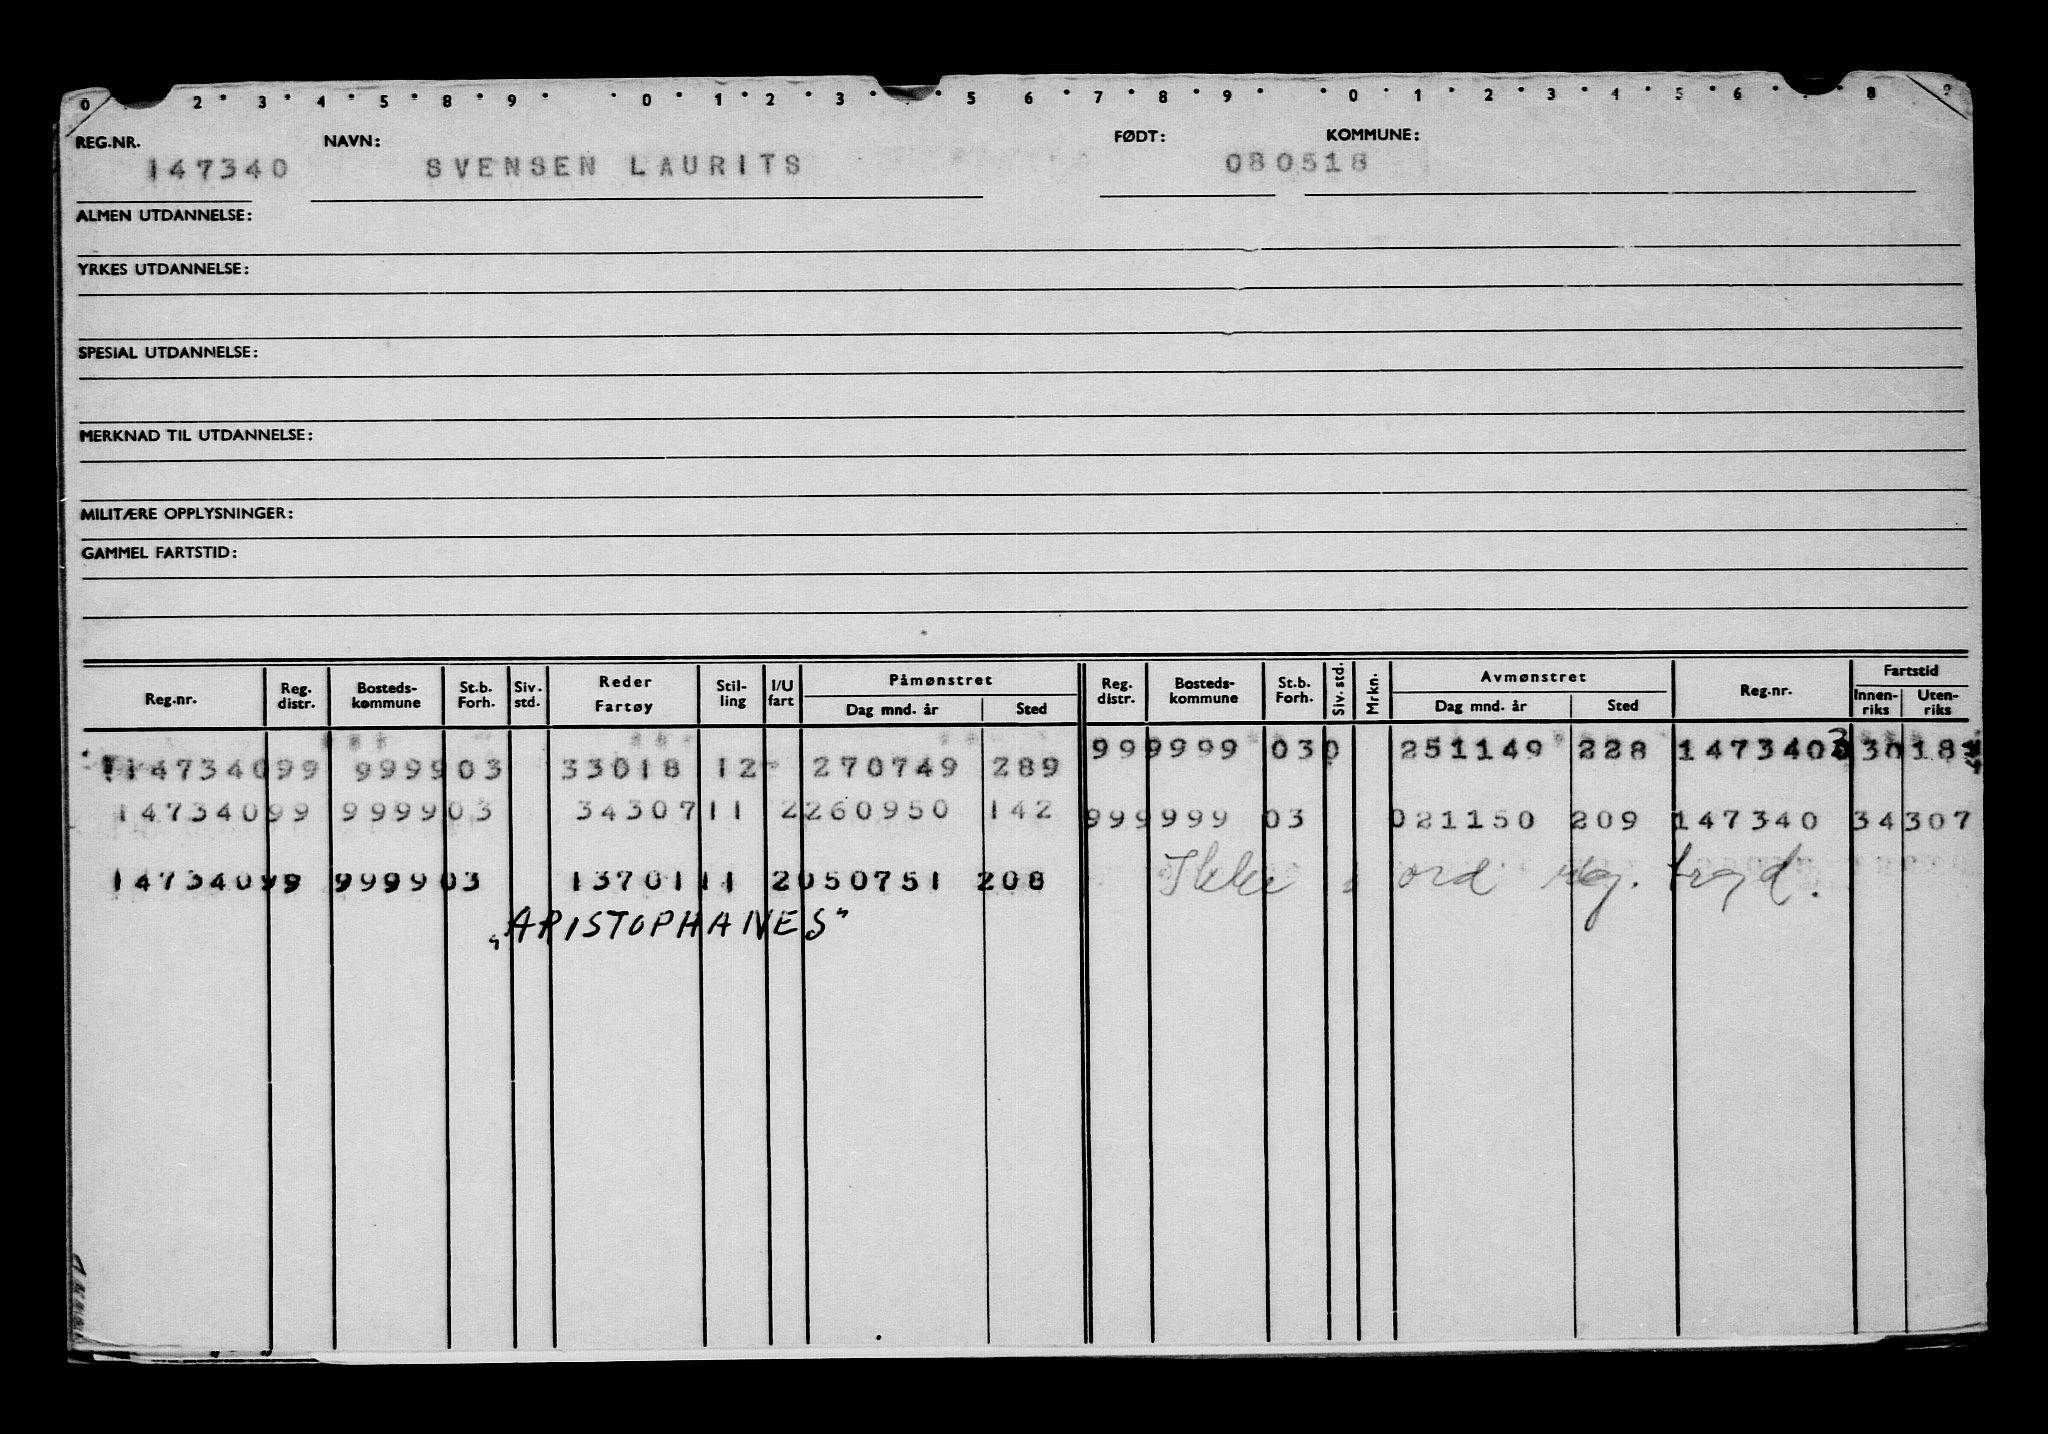 0 2 3 4 5 8 9 0 1 2 3 5 6 7 8 9 0 1 2 3 4 5 6 8 9
REG.NR. NAVN: FØDT: KOMMUNE:
147340 SVENSEN LAURITS 080518
ALMEN UTDANNELSE:
YRKES UTDANNELSE:
SPESIAL UTDANNELSE:
MERKNAD TIL UTDANNELSE:
MILITÆRE OPPLYSNINGER:
GAMMEL FARTSTID:
Reg.nr. Reg. distr. Bosteds-kommune St.b. Forh. Siv. std. Reder Fartøy Stil-ling I/U fart Påmønstret Dag mnd. år Sted Reg. distr. Bosteds-kommune St.b. Forh. Siv. std. Mrkn. Avmønstret Dag mnd. år Sted Reg.nr. Fartstid Innen-riks Uten-riks
147340 99 9999 03 33018 12 270749 289 99 9999 030 251149 228 147340 3 30 18
147340 99 9999 03 34307 11 2 260950 142 99 9999 03 021150 209 147340 34 307
147340 99 9999 03 13701 11 2 050751 208 Ikke ord reg.
„ARISTOPHANES"